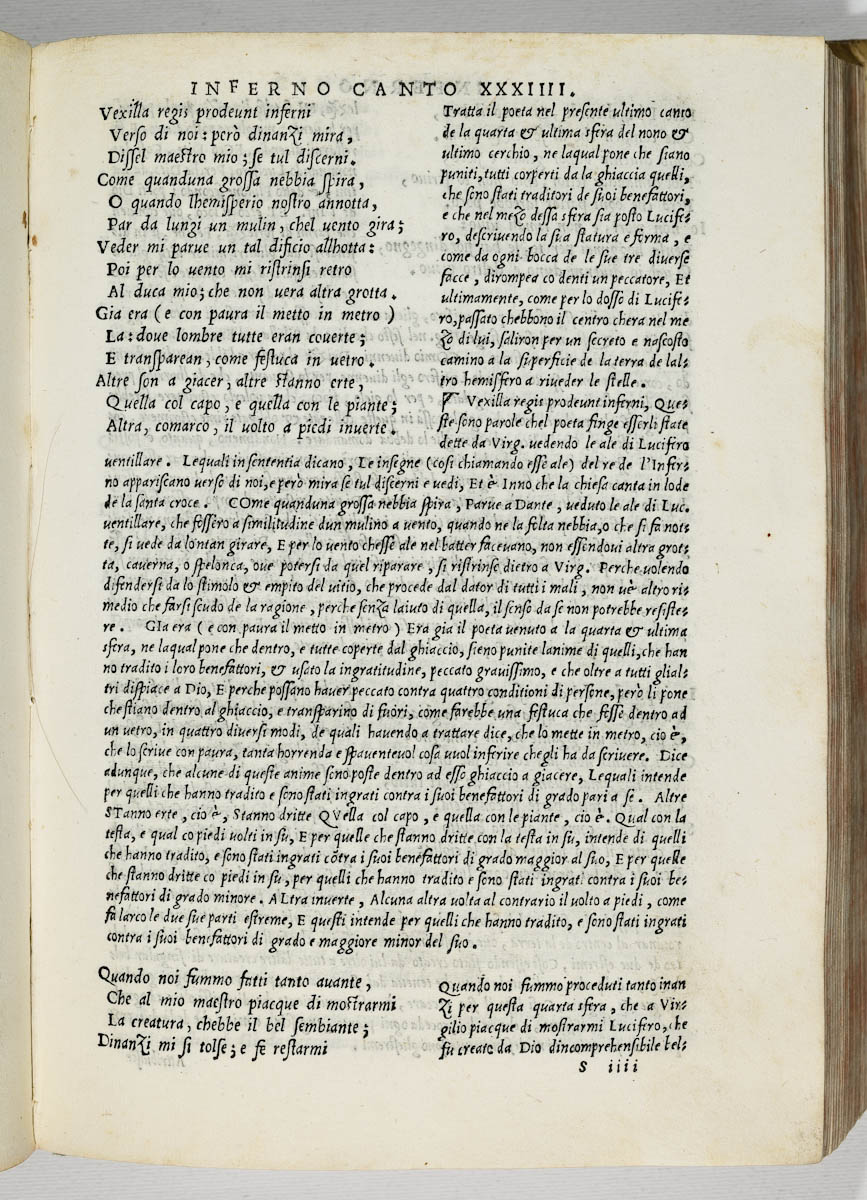 INFERNO CANTO XXXIIII.
Vexilla regis prodeunt inferni
Verso di noi: però dinanzi mira,
Dissel maestro mio; se tul discerni.
Come quanduna grossa nebbia spira,
O quando lhemisperio nostro annotta,
Par da lungi un mulin, chel vento gira;
Veder mi parue un tal dificio allhotta:
Poi per lo uento mi ristrinsi retro
Al duca mio; che non uera altra grotta.
Gia era (e con paura il metto in metro)
La: doue lombre tutte eran couerte;
E transparean, come festuca in uetro.
Altre son a giacer, altre stanno erte,
Quella col capo, e quella con le piante;
Altra, comarco, il uolto a piedi inuerte.
Tratta il poeta nel presente ultimo canto
de la quarta & ultima sfera del nono &
ultimo cerchio, ne laqual pone che siano
puniti, tutti corperti da la ghiaccia quelli,
che sono stati traditori de suoi benefattori,
e che nel mezo dessa sfera sia posto Lucife-
ro, descriuendo la sua statura e forma, e
come da ogni bocca de le sue tre diuerse
facce, dirompea co denti un peccatore, Et
ultimamente, come per lo dosso di Lucife-
ro, passato chebbono il centro chera nel me
zo di lui, saliron per un secreto e nascosto
camino a la superficie de la terra de lal-
tro hemisfero a riueder le stelle.
Vexilla regis prodeunt inferni, Que-
ste sono parole chel poeta finge esserli state
dette da Virg. uedendo le ale di Lucifero
uentillare. Lequali in sententia dicano, Le insegne (cosi chiamando esse ale) del re de l'Infer-
no appariscano uerso di noi, e però mira se tul discerni e uedi, Et è Inno che la chiesa canta in lode
de la santa croce. COme quanduna grossa nebbia spira, Parue a Dante, ueduto le ale di Luc.
uentillare, che fessero a similitudine dun mulino a uento, quando ne la folta nebbia, o che si fa not-
te, si uede da lontan girare, E per lo uento chesse ale nel batter faceuano, non essendoui altra grot-
ta, cauerna, o spelonca, oue potersi da quel riparare, si ristrinse dietro a Virg. Perche uolendo
difendersi da lo stimolo & empito del uitio, che procede dal dator di tutti i mali, non uè altro ri-
medio che farsi scudo de la ragione, perche senza laiuto di quella, il senso da se non potrebbe resiste-
re. GIa era (e con paura il metto in metro) Era gia il poeta uenuto a la quarta & ultima
sfera, ne laqual pone che dentro, e tutte coperte dal ghiaccio, sieno punite lanime di quelli, che han
no tradito i loro benefattori, & usato la ingratitudine, peccato grauissimo, e che oltre a tutti glial-
tri dispiace a Dio, E perche possano hauer peccato contra quattro conditioni di persone, però li pone
che stiano dentro al ghiaccio, e transparino di fuori, come farebbe una festuca che fosse dentro ad
un uetro, in quattro diuersi modi, de quali hauendo a trattare dice, che lo mette in metro, cio è,
che lo scriue con paura, tanta horrenda e spauenteuol cosa uuol inferire chegli ha da scriuere. Dice
adunque, che alcune di queste anime sono poste dentro ad esso ghiaccio a giacere, Lequali intende
per quelli che hanno tradito e sono stati ingrati contra i suoi benefattori di grado pari a se. Altre
STanno erte, cio è, Stanno dritte QVella col capo, e quella con le piante, cio è. Qual con la
testa, e qual co piedi uolti in su, E per quelle che stanno dritte con la testa in su, intende di quelli
che hanno tradito, e sono stati ingrati cõtra i suoi benefattori di grado maggior al suo, E per quelle
che stanno dritte co piedi in su, per quelli che hanno tradito e sono stati ingrati contra i suoi be-
nefattori di grado minore. ALtra inuerte, Alcuna altra uolta al contrario il uolto a piedi, come
fa larco le due sue parti estreme, E questi intende per quelli che hanno tradito, e sono stati ingrati
contra i suoi benefattori di grado e maggiore minor del suo.
Quando noi fummo fatti tanto auante,
Che al mio maestro piacque di mostrarmi
La creatura, chebbe il bel sembiante;
Dinanzi mi si tolse; e fe restarmi
Quando noi fummo proceduti tanto inan
zi per questa quarta sfera, che a Vir-
gilio piacque di mostrarmi Lucifero, che
fu creato da Dio dincomprehensibile bel-
S iiii